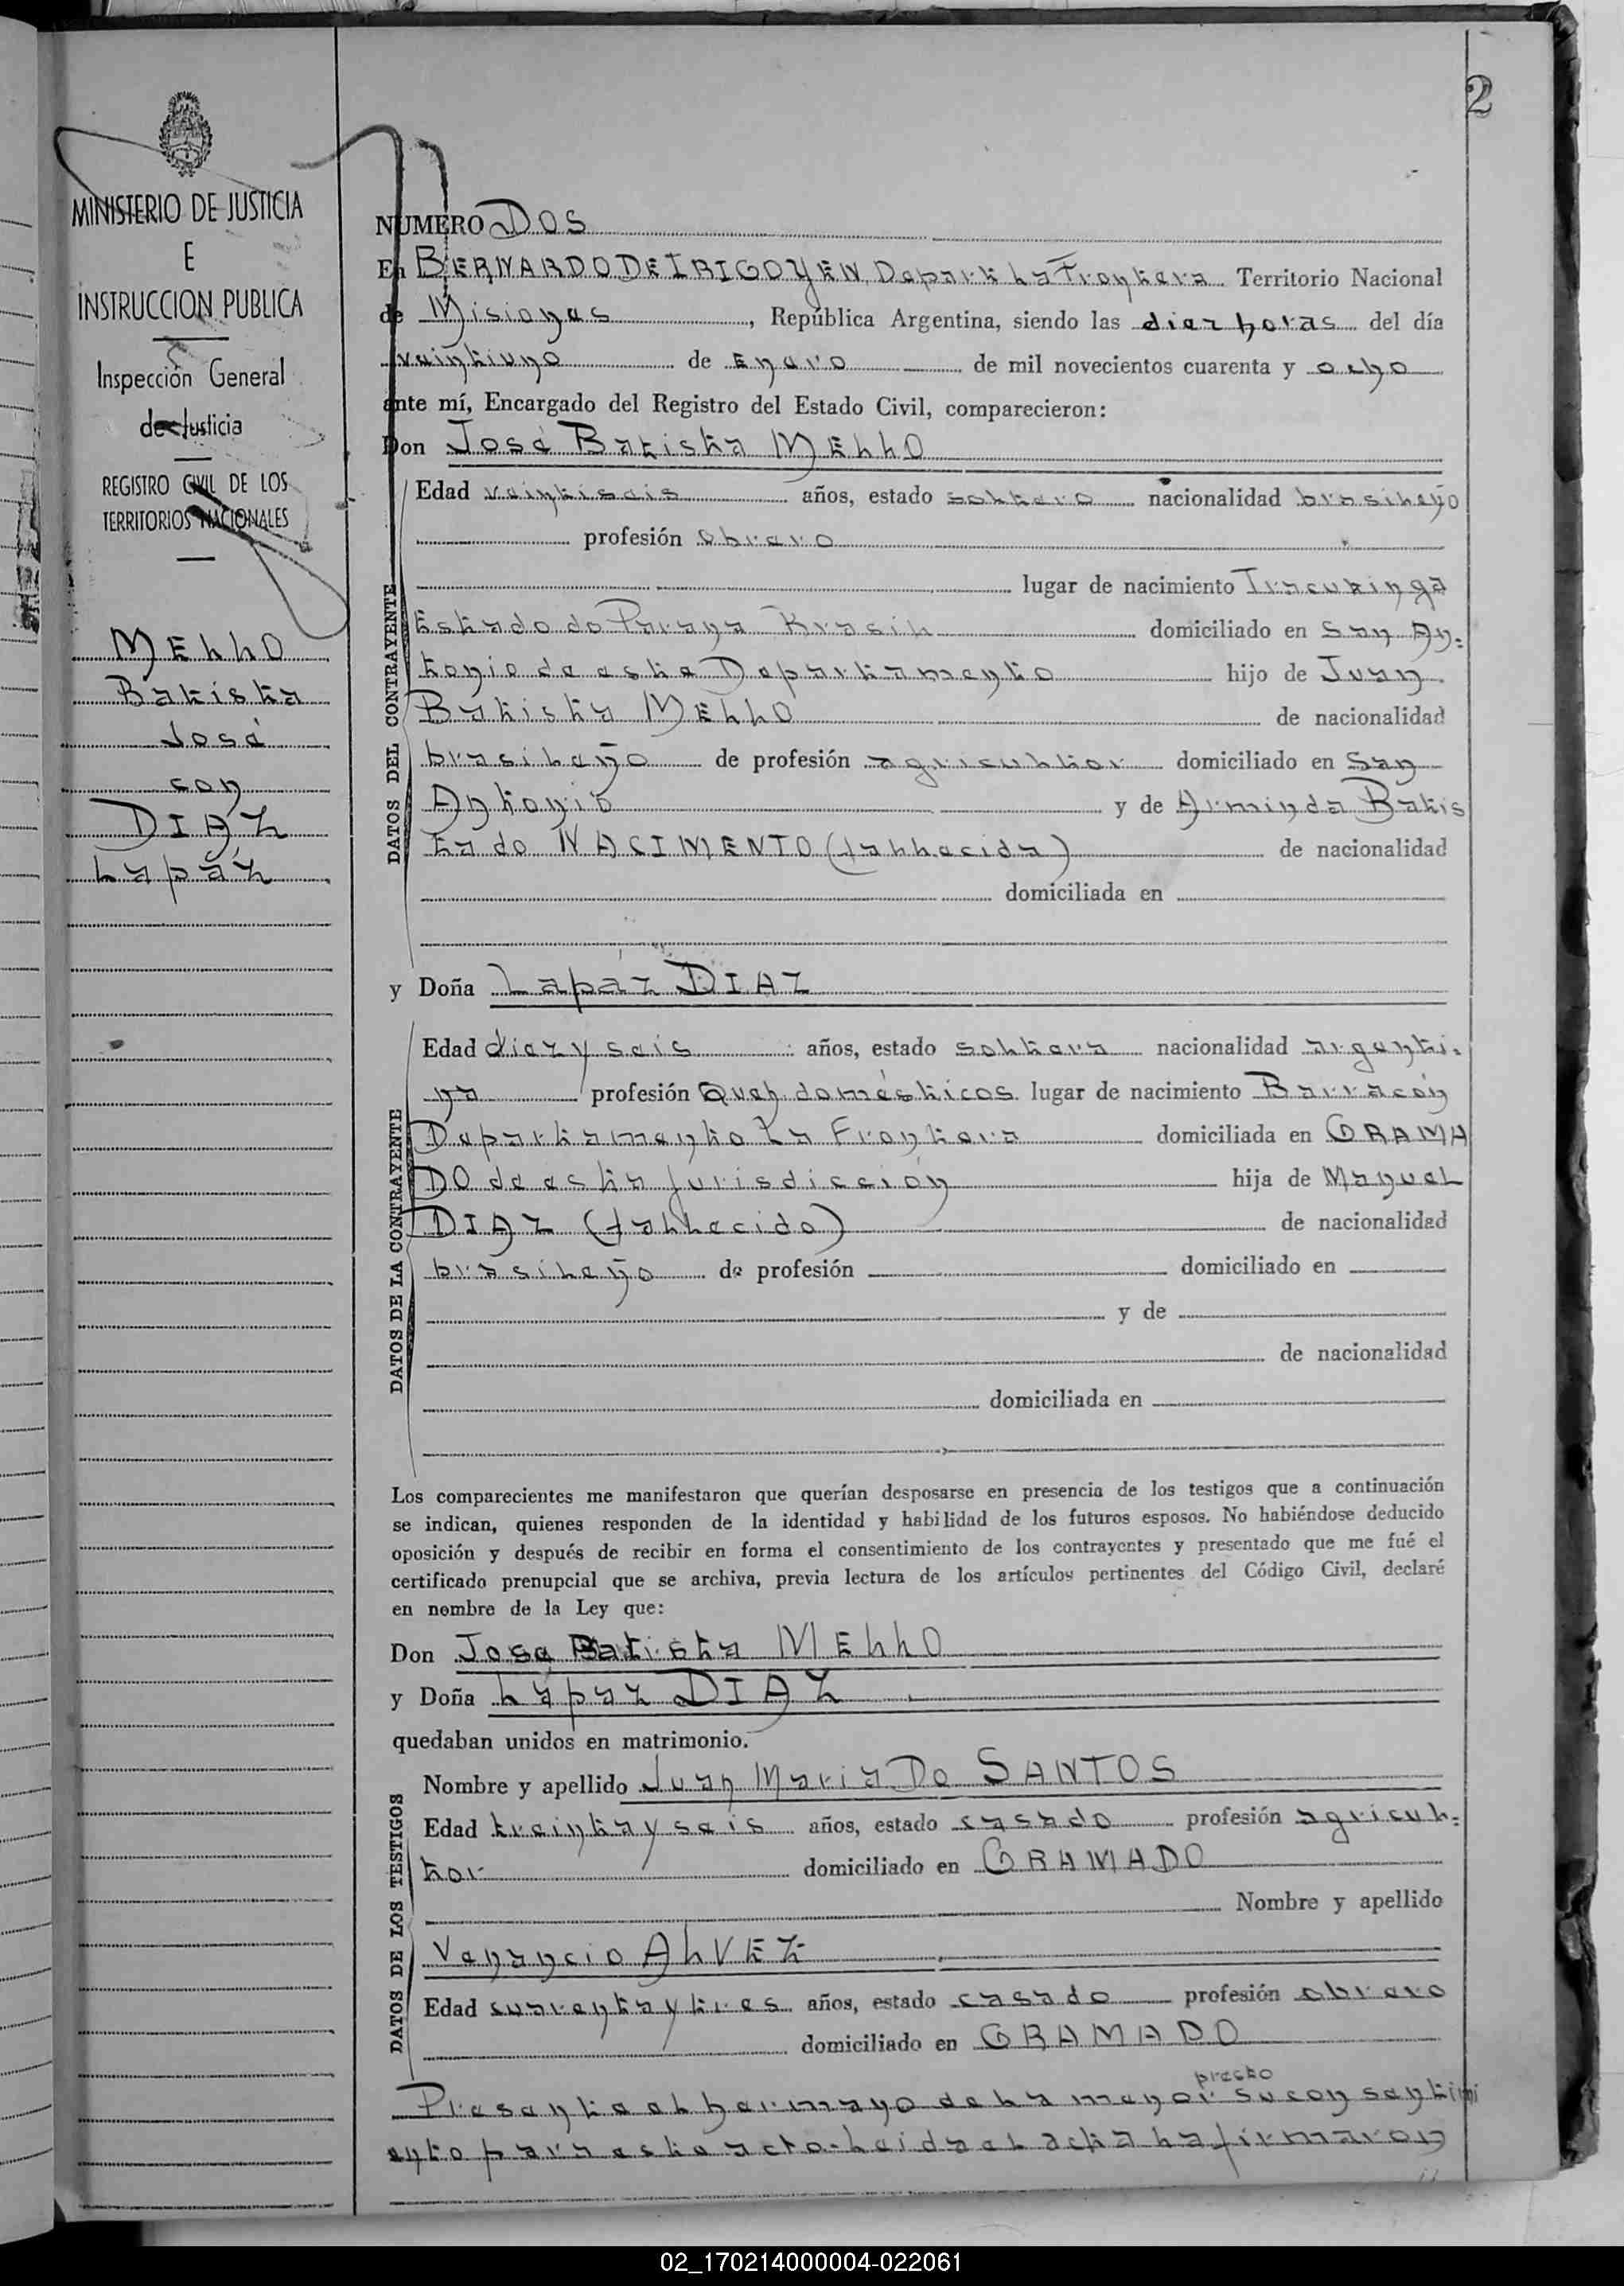 2
MINISTERIO DE JUSTICIA
E
INSTRUCCION PUBLICA
Inspección General
de Justicia
REGISTRO CIVIL DE LOS
TERRITORIOS NACIONALES
MELLO
Batista
José
con
DIAZ
Lapáz
NUMERO DOS
En BERNARDO DE IRIGOYEN, Depart La Frontera Territorio Nacional
de Misiones, República Argentina, siendo las diez horas del día
veintiuno de Enero de mil novecientos cuarenta y ocho
ante mí, Encargado del Registro del Estado Civil, comparecieron:
Don José Batista MELLO
DATOS DEL CONTRAYENTE
Edad veintiseis años, estado soltero nacionalidad brasileño
profesión Obrero
lugar de nacimiento
Estado do Parana Brasil domiciliado en San An-
tonio de este Departamento hijo de Juan
Batista MELLO de nacionalidad
brasileño de profesión agricultor domiciliado en San
Antonio y de Arminda Batis
ta do NACIMENTO (fallecida) de nacionalidad
domiciliada en
y Doña Lapáz DIAZ
DATOS DE LA CONTRAYENTE
Edad diez y seis años, estado soltera nacionalidad argenti-
na profesión Queh. domésticos lugar de nacimiento Barracón
Departamento La Frontera domiciliada en GRAMA
DO de esta jurisdicción hija de Manuel
DIAZ (fallecido) de nacionalidad
brasileño de profesión domiciliado en
y de
de nacionalidad
domiciliada en
Los comparecientes me manifestaron que querían desposarse en presencia de los testigos que a continuación
se indican, quienes responden de la identidad y habilidad de los futuros esposos. No habiéndose deducido
oposición y después de recibir en forma el consentimiento de los contrayentes y presentado que me fué el
certificado prenupcial que se archiva, previa lectura de los artículos pertinentes del Código Civil, declaré
en nombre de la Ley que:
Don José Batista MELLO
y Doña Lapaz DIAZ
quedaban unidos en matrimonio.
DATOS DE LOS TESTIGOS
Nombre y apellido Juan Maria Do SANTOS
Edad treinta y seis años, estado casado profesión agricul-
tor domiciliado en GRAMADO
Nombre y apellido
Venancio ALVEZ
Edad cuarenta y tres años, estado casado profesión obrero
domiciliado en GRAMADO
presto
Presente el hermano de la menor su consentimi
ento para este acto. Leida el acta la firmaron
02_170214000004-022061